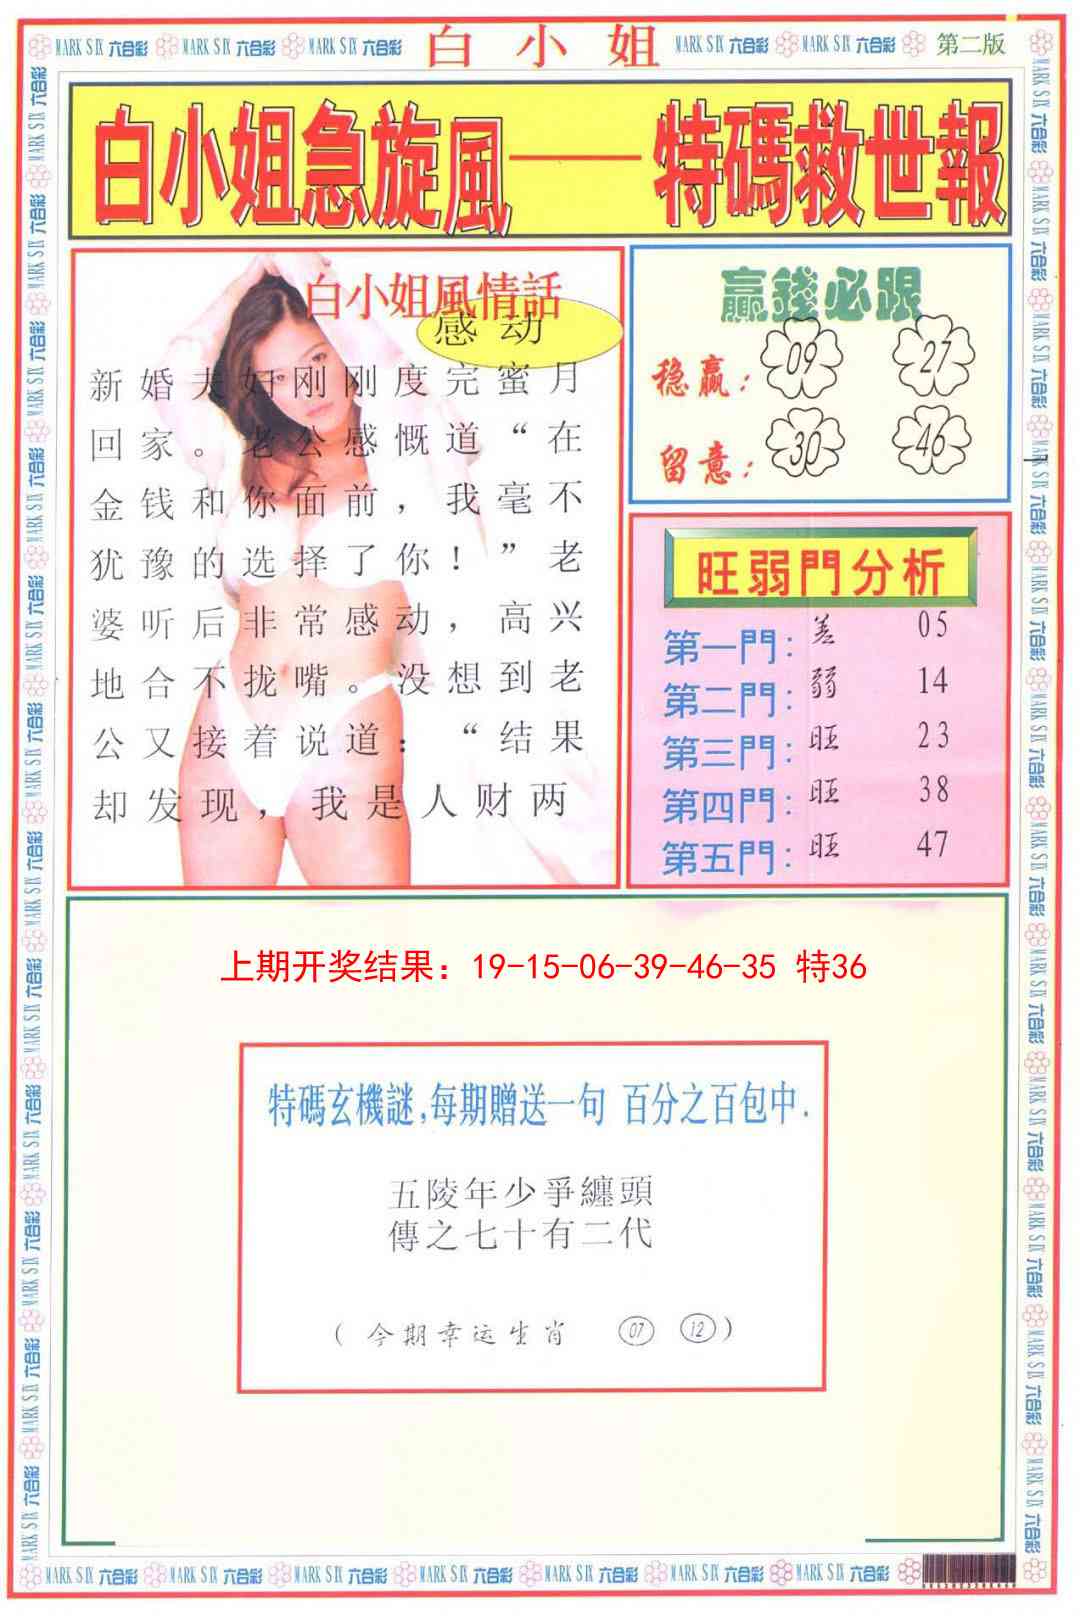 MARK SIX 六合彩 MARK SIX 六合彩 MARK SIX 六合彩 白小姐 MARK SIX 六合彩 MARK SIX 六合彩 第二版
白小姐急旋風——特碼救世報
白小姐風情話
感动
新婚夫妇刚刚度完蜜月
回家。老公感慨道“在
金钱和你面前，我毫不
犹豫的选择了你！”老
婆听后非常感动，高兴
地合不拢嘴。没想到老
公又接着说道：“结果
却发现，我是人财两
贏錢必跟
稳赢： 09 27
留意： 30 46
旺弱門分析
第一門：差 05
第二門：弱 14
第三門：旺 23
第四門：旺 38
第五門：旺 47
上期开奖结果：19-15-06-39-46-35 特36
特碼玄機謎,每期贈送一句 百分之百包中.
五陵年少爭纏頭
傳之七十有二代
（今期幸运生肖 07 12）
MARK SIX 六合彩 MARK SIX 六合彩 MARK SIX 六合彩 MARK SIX 六合彩 MARK SIX 六合彩 MARK SIX 六合彩 MARK SIX 六合彩